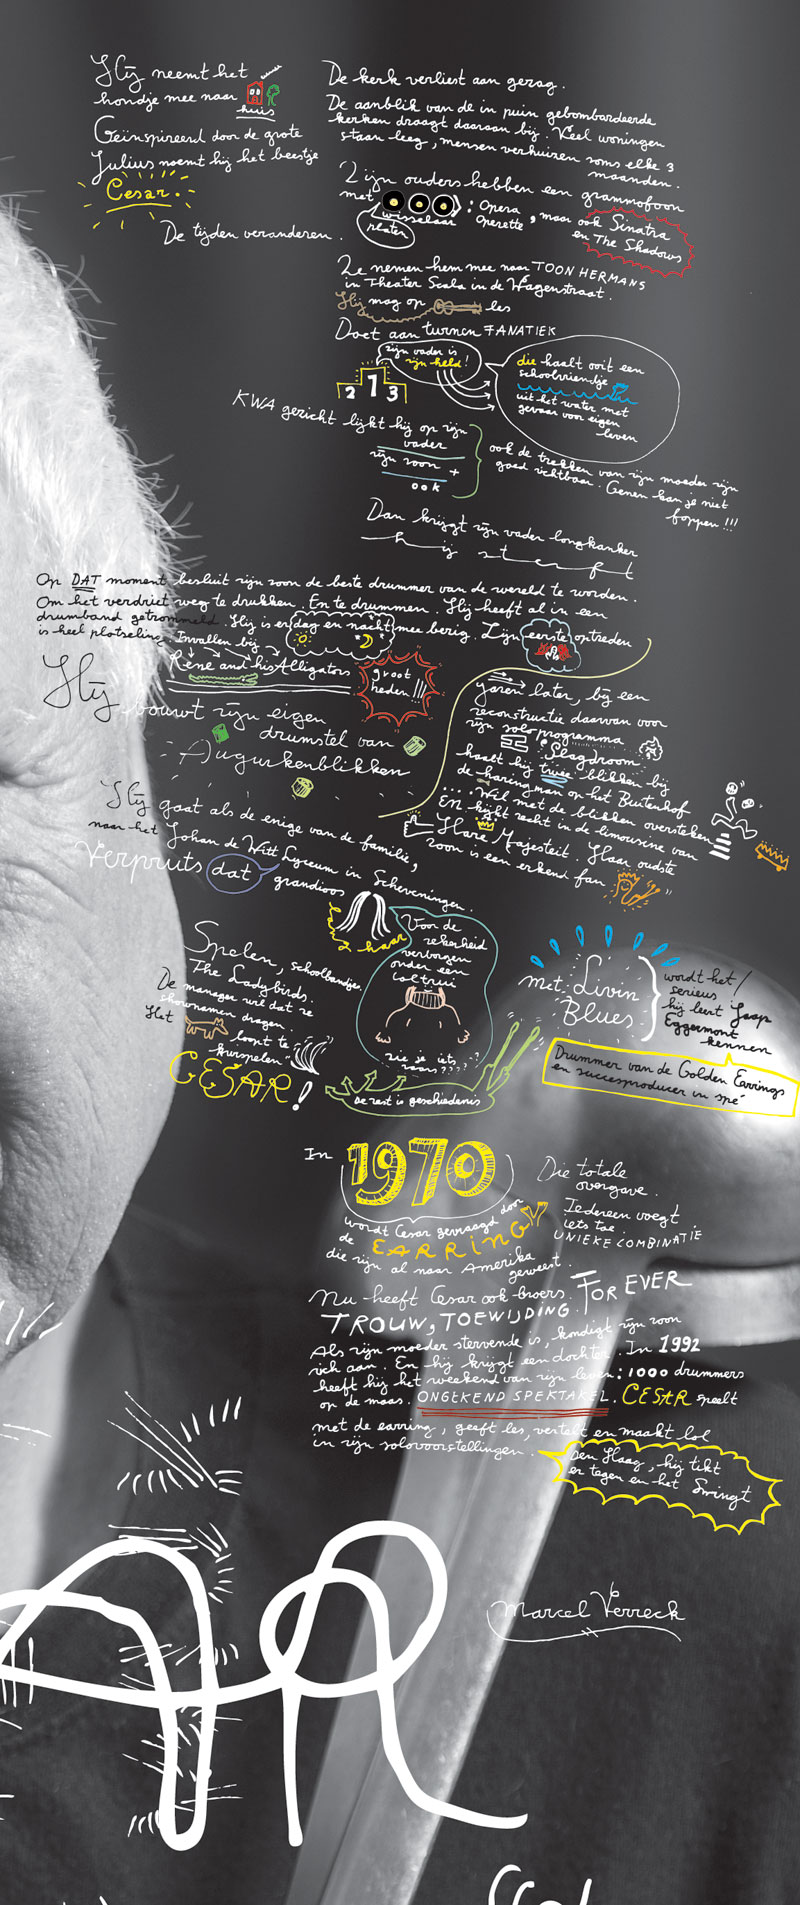 Hij neemt het
hondje mee naar
huis
Geïnspireerd door de grote
Julius noemt hij het beestje
Cesar.
De tijden veranderen.
De kerk verliest aan gezag.
De aanblik van de in puin gebombardeerde
kerken draagt daaraan bij. Veel woningen
staan leeg, mensen verhuizen soms elke 3
maanden.
Zijn ouders hebben een grammofoon
met
wisselaar
platen
: Opera
Operette
, maar ook Sinatra
en The Shadows
Ze nemen hem mee naar TOON HERMANS
in Theater Scala in de Wagenstraat.
Hij mag op les
Doet aan turnen FANATIEK
zijn vader is
zijn held!
2 1 3
die haalt ooit een
schoolvriendje
uit het water met
gevaar voor eigen
leven
KWA gezicht lijkt hij op zijn
vader
zijn zoon +
ook
ook de trekken van zijn moeder zijn
goed zichtbaar. Genen kan je niet
foppen!!!
Dan krijgt zijn vader longkanker
hij sterft
Op DAT moment besluit zijn zoon de beste drummer van de wereld te worden.
Om het verdriet weg te drukken. En te drummen. Hij heeft al in een
drumband getrommeld. Hij is er dag en nacht mee bezig. Zijn eerste optreden
is heel plotseling. Invallen bij
René and his Alligators
groot
heden!!!
Hij bouwt zijn eigen
drumstel van
Augurkenblikken
jaren later, bij een
reconstructie daarvan voor
zijn soloprogramma
Slagdroom
haalt hij blikken bij
de haringman op het Buitenhof
... Wil met de blikken oversteken
En kijkt recht in de limousine van
Hare Majesteit. Haar oudste
zoon is een erkend fan
Hij gaat als de enige van de familie,
naar het Johan de Witt Lyceum in Scheveningen.
Verpruts dat grandioos
Lang haar
Voor de
zekerheid
verborgen
onder een
coltrui
zie je iets
raars????
Spelen, schoolbandje.
The Ladybirds.
De manager wil dat ze
shownamen dragen
Het loopt te
kwispelen.
CESAR!
De rest is geschiedenis
met Livin
Blues
wordt het
serieus
hij leert Jaap
Eggermont
kennen
Drummer van de Golden Earrings
en succesproducer in spé
In 1970
wordt Cesar gevraagd door
de EARRING
die zijn al naar Amerika
geweest.
Die totale
overgave.
Iedereen voegt
iets toe.
UNIEKE COMBINATIE
Nu heeft Cesar ook broers. FOR EVER
TROUW, TOEWIJDING.
Als zijn moeder stervende is, kondigt zijn zoon
zich aan. En hij krijgt een dochter. In 1992
heeft hij het weekend van zijn leven: 1000 drummers
op de maas. ONGEKEND SPEKTAKEL. CESAR speelt
met de earring, geeft les, vertelt en maakt lol
in zijn solovoorstellingen.
Den Haag, hij tikt
er tegen en het Swingt
Marcel Verreck